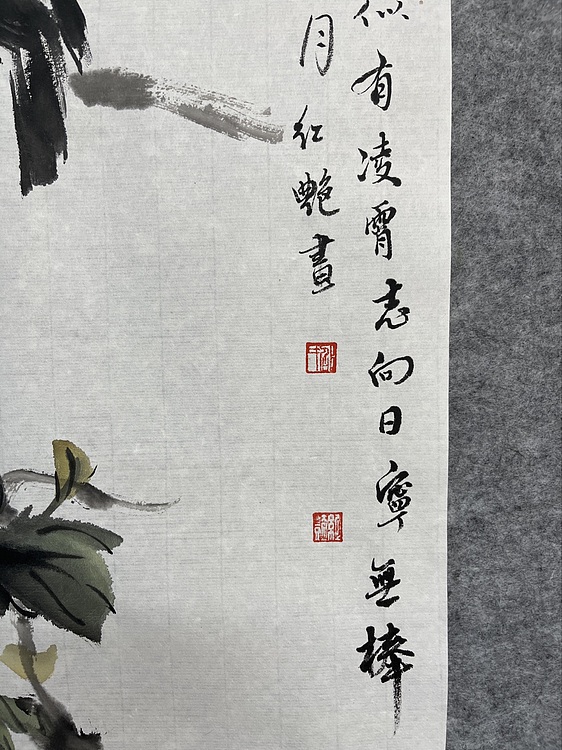 似有凌霄志向日寧無棒
月红艷畫